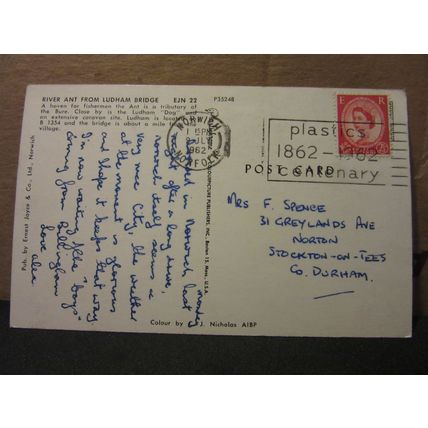 RIVER ANT FROM LUDHAM BRIDGE EJN 22 P35248
A haven for fishermen the Ant is a tributary of
the Bure. Close by is the Ludham "Dog" and
an extensive caravan site. Ludham is located
B 1354 and the bridge is about a mile from
village.
E R
NORWICH
1 15PM
JULY
1962
NORFOLK
plastics
1862-1962
centenary
POST CARD
MRS F. SPENCE
31 GREYLANDS AVE
NORTON
STOCKTON-ON-TEES
CO. DURHAM.
Monday
in Norwich last
night after a long drive,
Norwich itself seems a
very nice City, the weather
at the moment is glorious
and hope it keeps that way
I'm now waiting of the "boys"
coming from Billingham
love alex
Pub. by Ernest Joyce & Co., Ltd., Norwich
COLOURPICTURE PUBLISHERS, INC., Boston 15, Mass., U.S.A.
Colour by J. Nicholas AIBP